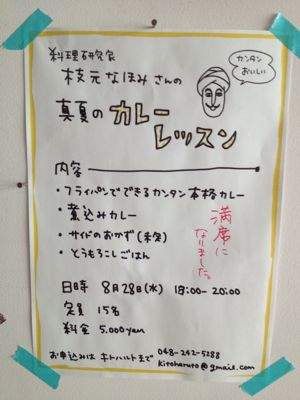 料理研究家
枝元なほみさんの
カンタン
おいしい
真夏のカレー
レッスン
内容
・フライパンでできるカンタン本格カレー
・煮込みカレー
・サイドのおかず(未定)
・とうもろこしごはん
満席に
なりました。
日時 8月28日(水) 18:00-20:00
定員 15名
料金 5.000yen
お申込みは キトハルトまで 048-242-5288
kitoharuto@gmail.com